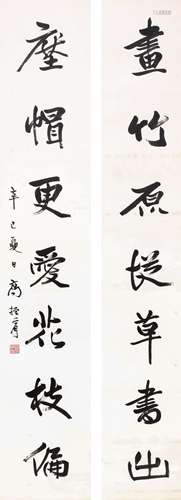 畫竹原從草書出
壓帽更愛花枝偏
辛巳夏日高振霄